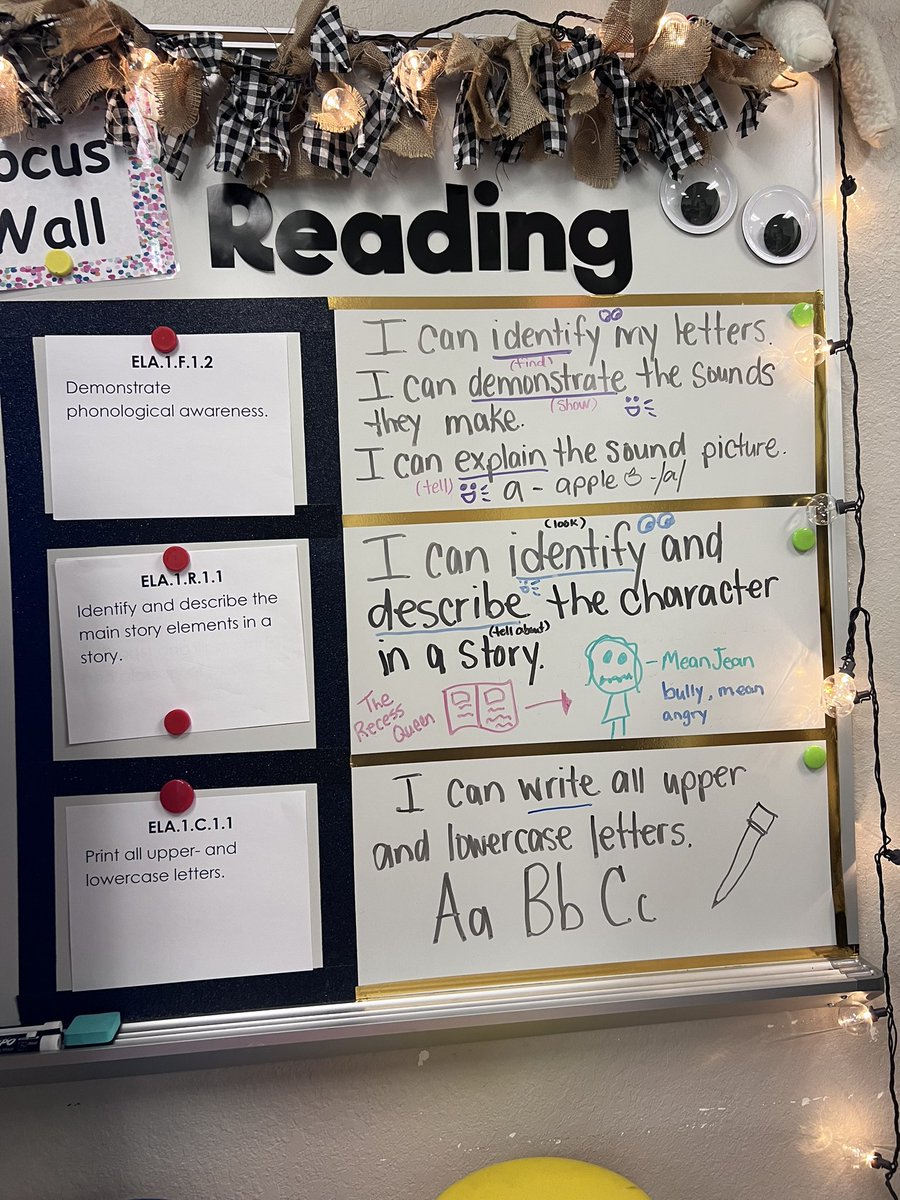 ocus
Wall
Reading
ELA.1.F.1.2
Demonstrate
phonological awareness.
I can identify my letters.
(find)
I can demonstrate the sounds
(show)
they make.
I can explain the sound picture.
(tell) a - apple -/a/
ELA.1.R.1.1
Identify and describe the
main story elements in a
story.
(look)
I can identify and
describe the character
(tell about)
in a story.
The
Recess
Queen
- Mean Jean
bully, mean
angry
ELA.1.C.1.1
Print all upper- and
lowercase letters.
I can write all upper
and lowercase letters.
Aa Bb Cc